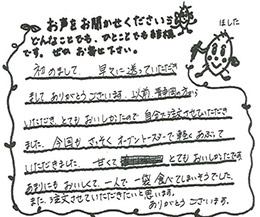 お声をお聞かせください
どんなことでも、ひとことでも結構
です。ぜひお寄せ下さい。
ほした
初めまして、早々に送っていただき
ましてありがとうございます。以前、静岡の方から
いただき、とてもおいしかったので自分で注文させていただき
ました。今回も、さっそくオーブントースターで軽くあぶって
いただきました。甘くて とてもおいしかったです
あまりにもおいしくて、一人で一袋食べてしまいそうでした。
また、注文させていただきたいと思います。
ありがとうございます。